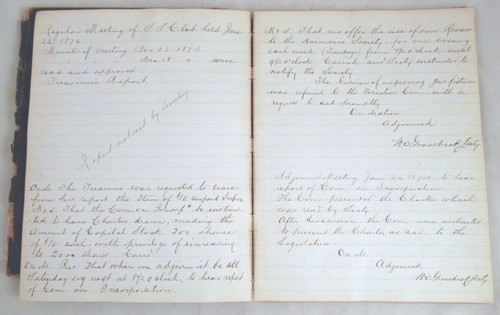 Regular Meeting of S. S. Club held Jan
22d 1874
Minutes of Meeting Nov 13. 1873
" " " Dec 18 " were
read and approved
Treasurers Report
Report not read by Secretary
On de. The Treasurer was requested to erase
from his report the Item of $10 unpaid
Res. That the Com on Incorp be instruc
ted to have Charter drawn, making the
Amount of Capital Stock 200 shares
of $10 each, worth privilege of increasing
to 2000 shares. Carried
On de. Res. That when we adjourn it be till
Saturday evg next at 7 1/2 o'clock, to hear report
of Com on Incorporation.
Res. That we offer the use of our Rooms
to the Harmonic Society, for one evening
each week (Tuesday) from 7 1/2 o'clock until
9 1/2 o'clock. Carried and Secty instructed to
notify the Society
The of improving Gas fixtures
was referred to the Executive Com. with a
request to act promptly
On Motion
Adjourned
Secty
Adjourned Meeting Jan 24 1874. to hear
report of Com on Incorporation
The Com presented the Charter which
was read by Secty
After discussion, the Com were instructed
to present the Charter as read to the
Legislature.
On de.
Adjourned
Secty